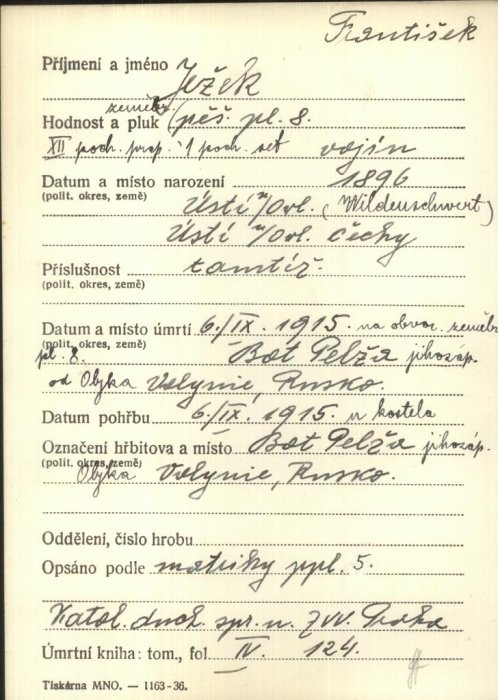 František
Příjmení a jméno Ježek
zeměbr.
Hodnost a pluk (pěš. pl. 8.
XII poch. prap. 1 poch. set vojín
Datum a místo narození 1896
(polit. okres, země) Ústí n/Orl. (Wildenschwert)
Ústí n/Orl. Čechy
Příslušnost tamtéž.
(polit. okres, země)
Datum a místo úmrtí 6./IX. 1915. na obvaz. zeměbr.
(polit. okres, země)
pl. 8. Bat Pelža jihozáp.
od Olyka Volynie, Rusko.
Datum pohřbu 6./IX. 1915. u kostela
Označení hřbitova a místo Bat Pelža jihozáp.
(polit. okres, země)
Olyka Volynie, Rusko.
Oddělení, číslo hrobu
Opsáno podle matriky ppl. 5.
Katol. duch. spr. n. ZVV. Praha
Úmrtní kniha: tom., fol. IV. 124.
Tiskárna MNO. — 1163-36.